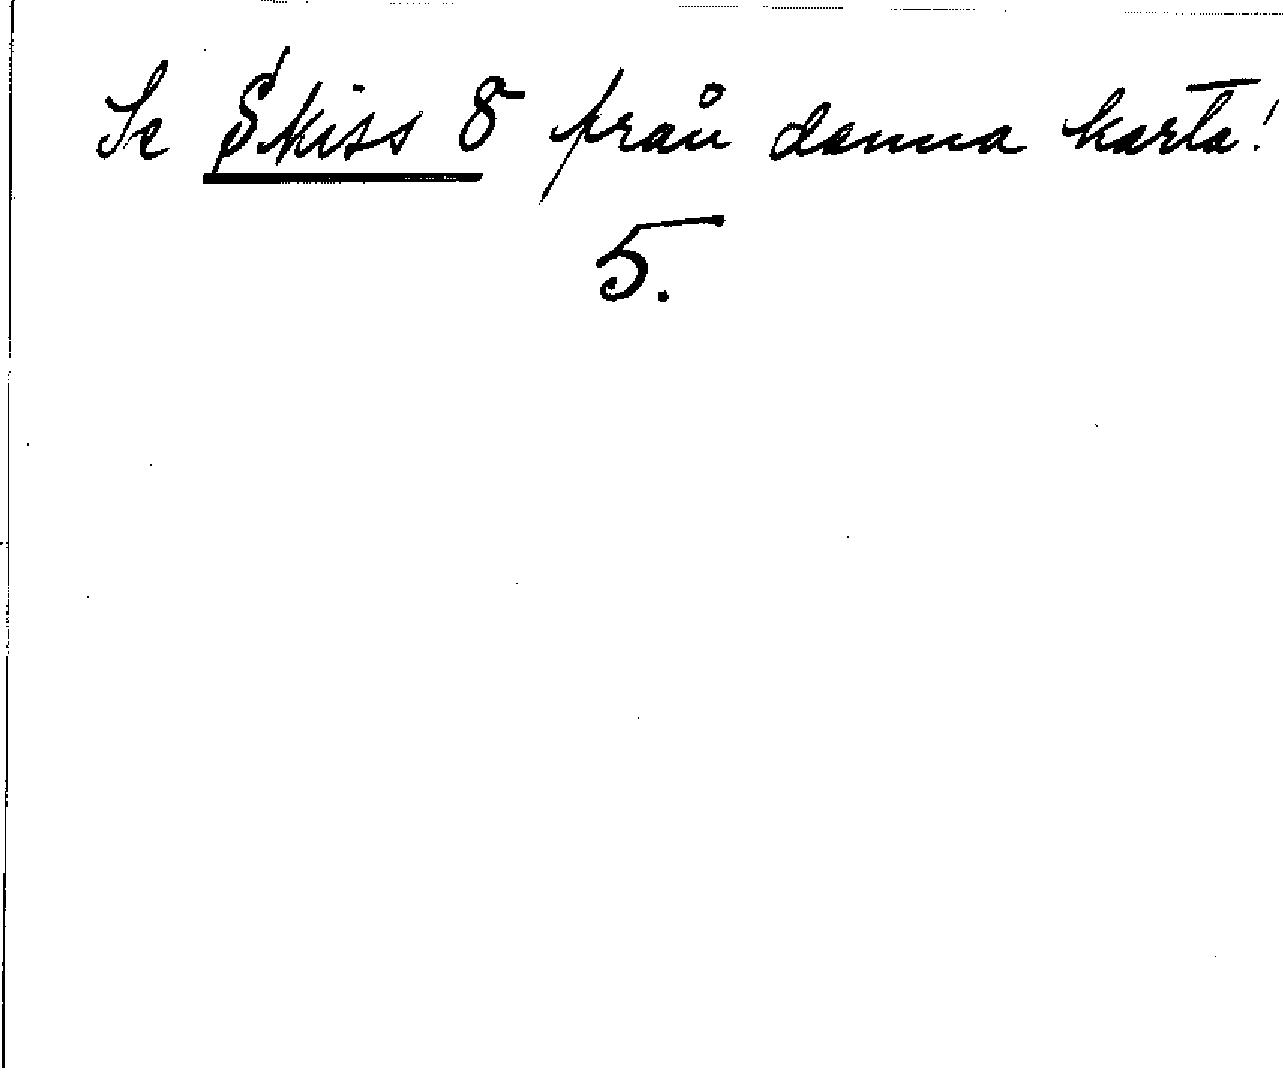 Se Skiss 8 från denna karta!
5.